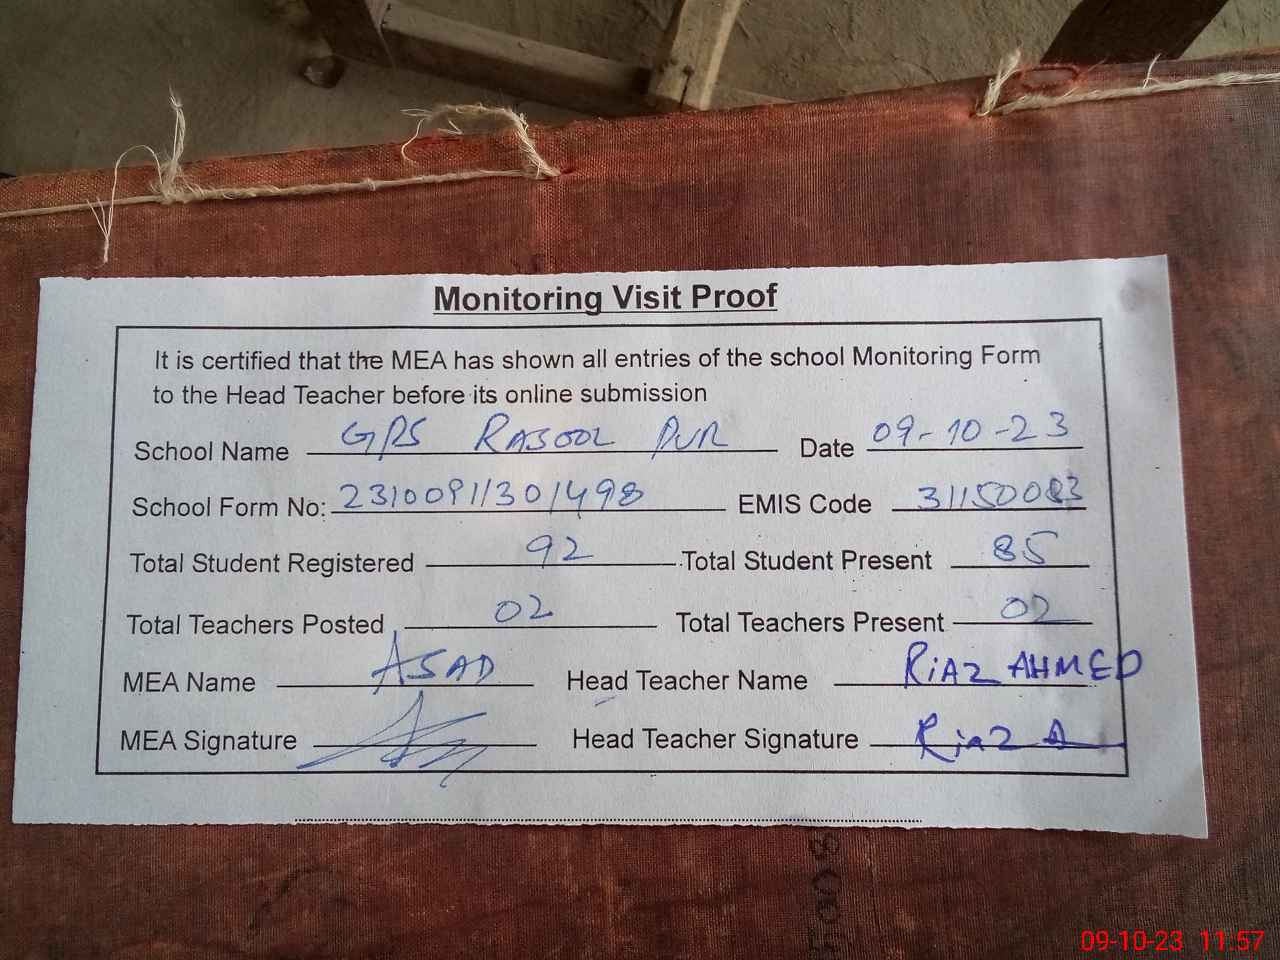 Monitoring Visit Proof
It is certified that the MEA has shown all entries of the school Monitoring Form
to the Head Teacher before its online submission
School Name GPS RASOOL PUR Date 09-10-23
School Form No: 23100911301498 EMIS Code 31150083
Total Student Registered 92 Total Student Present 85
Total Teachers Posted 02 Total Teachers Present 02
MEA Name ASAD Head Teacher Name RiAZ AHMED
MEA Signature Head Teacher Signature Riaz A
09-10-23 11:57